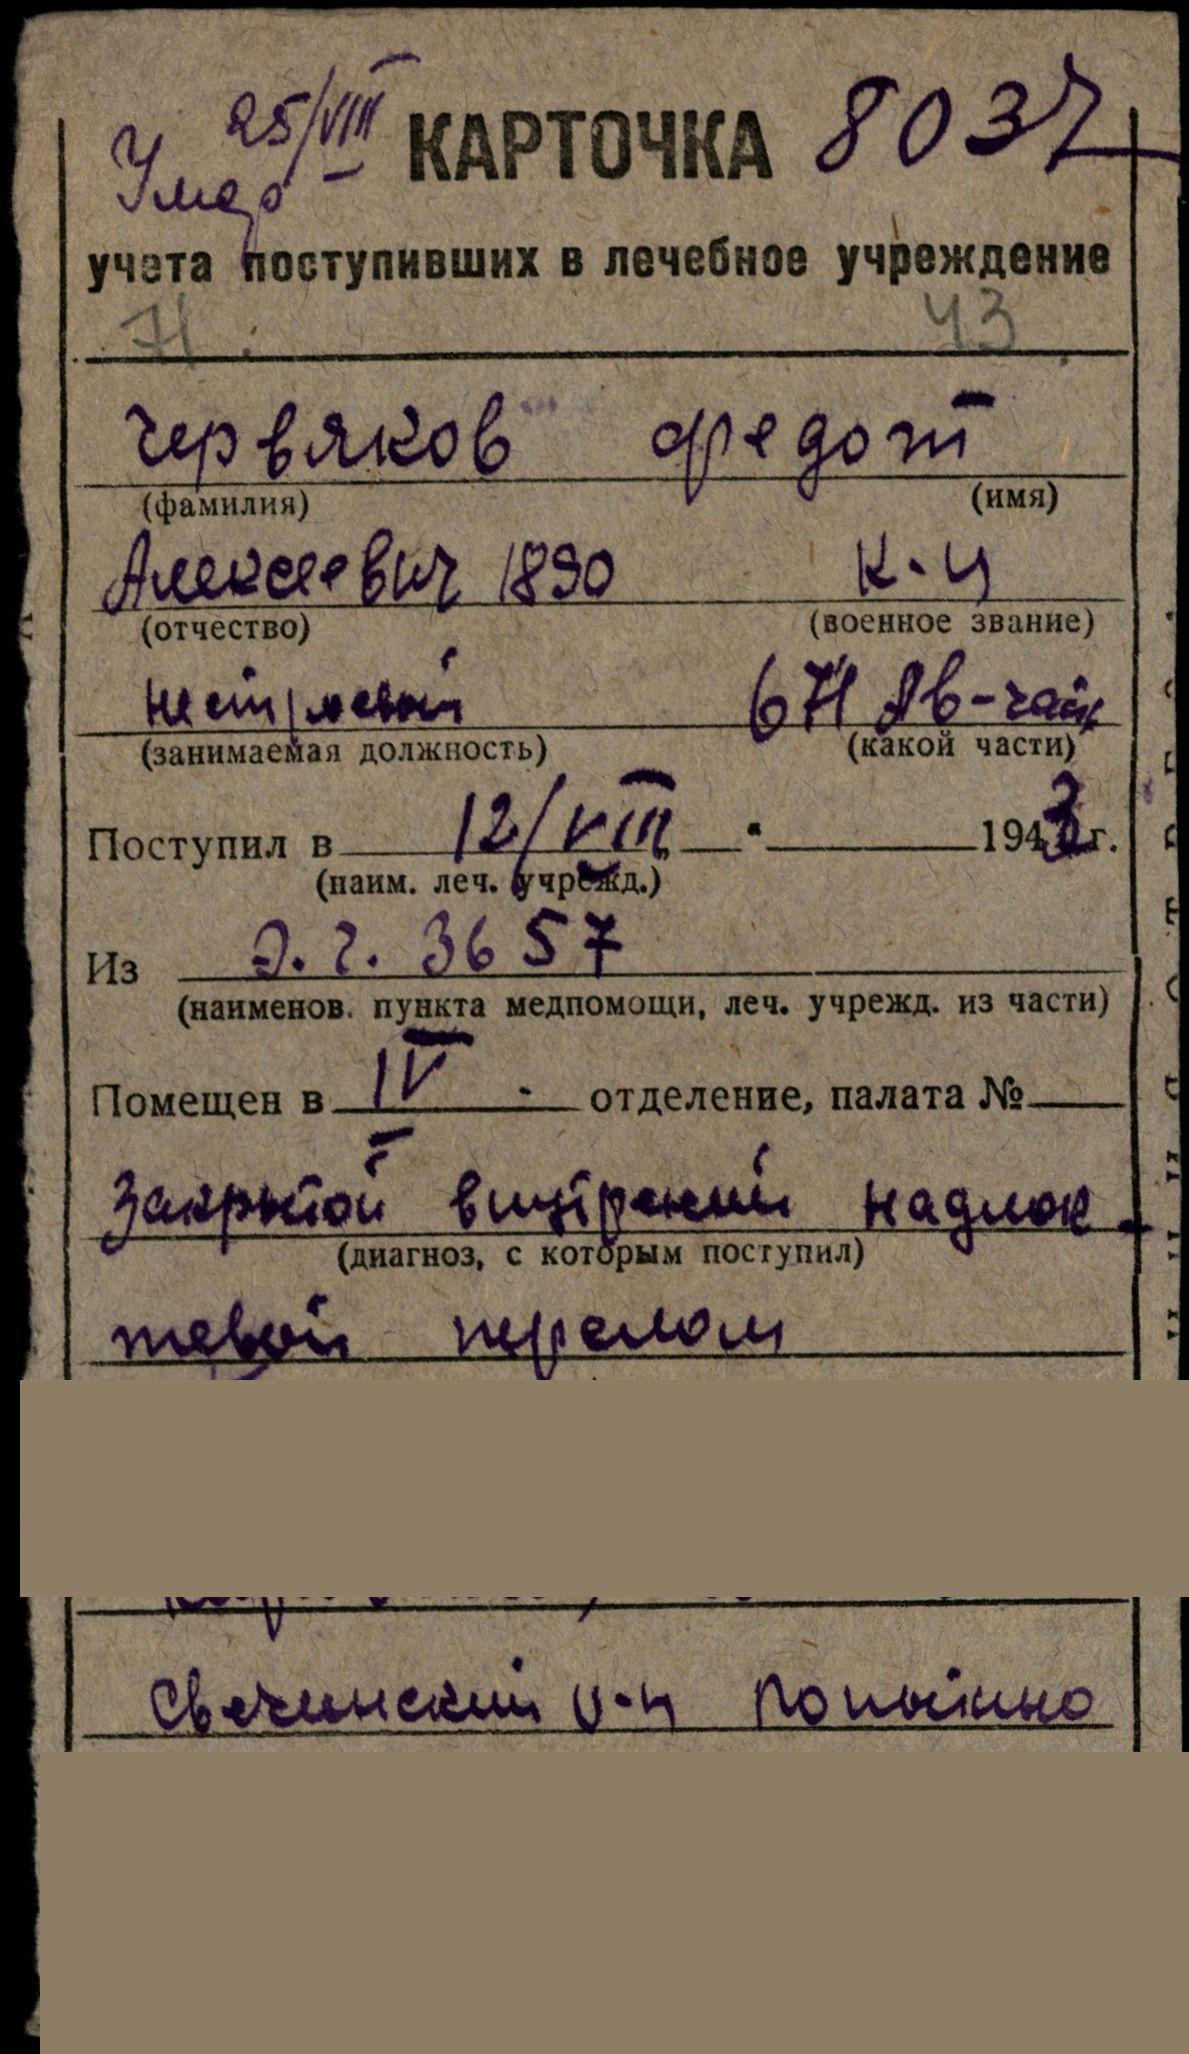 25/VIII КАРТОЧКА 8037
Умер
учета поступивших в лечебное учреждение
71. 43
Червяков Федот
(фамилия) (имя)
Алексеевич 1890 к-ц
(отчество) (военное звание)
нестроевой 671 Ав-
(занимаемая должность) (какой части)
Поступил в 12/VIII 1943 г.
(наим. леч. учрежд.)
Из Э.Г. 3657
(наименов. пункта медпомощи, леч. учрежд. из части)
Помещен в IV отделение, палата №
Закрытой внутрений надлок-
(диагноз, с которым поступил)
тевой перелом
Свечинский р-н